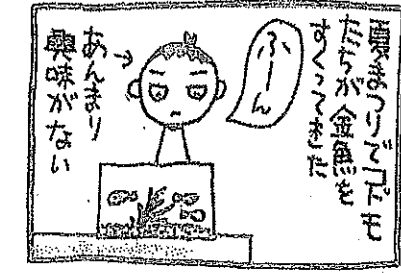 夏まつりでコドモ
たちが金魚を
すくってきた
ふーん
あんまり
興味がない